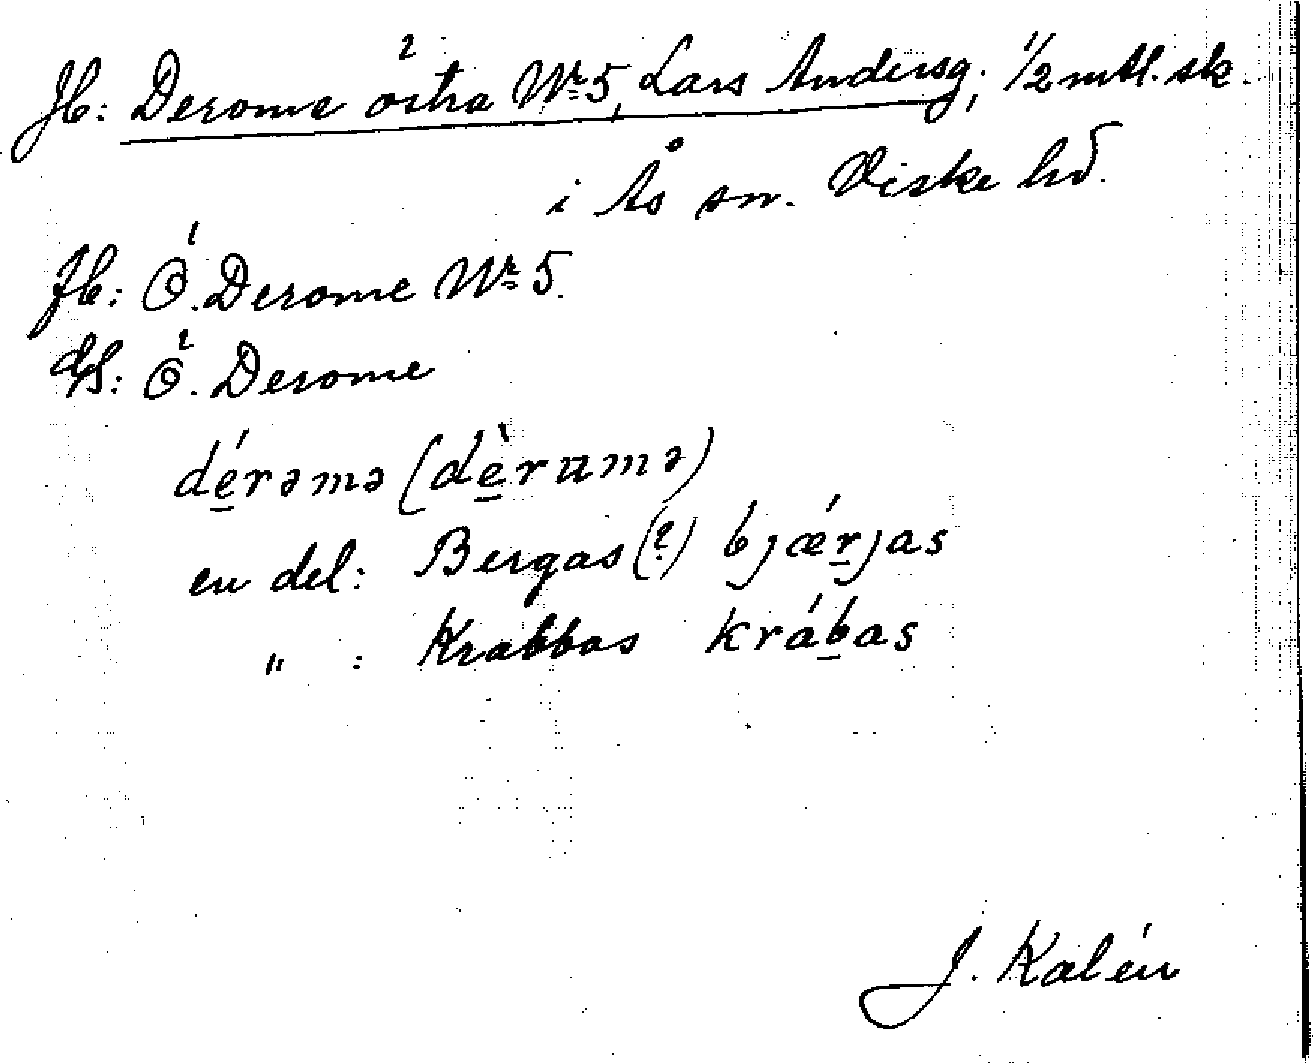 Jb: Derome östra Nr 5, Lars Andersg; 1/2 mtl. sk.
i Ås sn. Viske hd.
Jb: Ö. Derome Nr 5.
Ö. Derome
dérəmə (dèrumə)
en del: Bergas (?) bjǽrjas
" : Krabbas krábas
J. Kalén